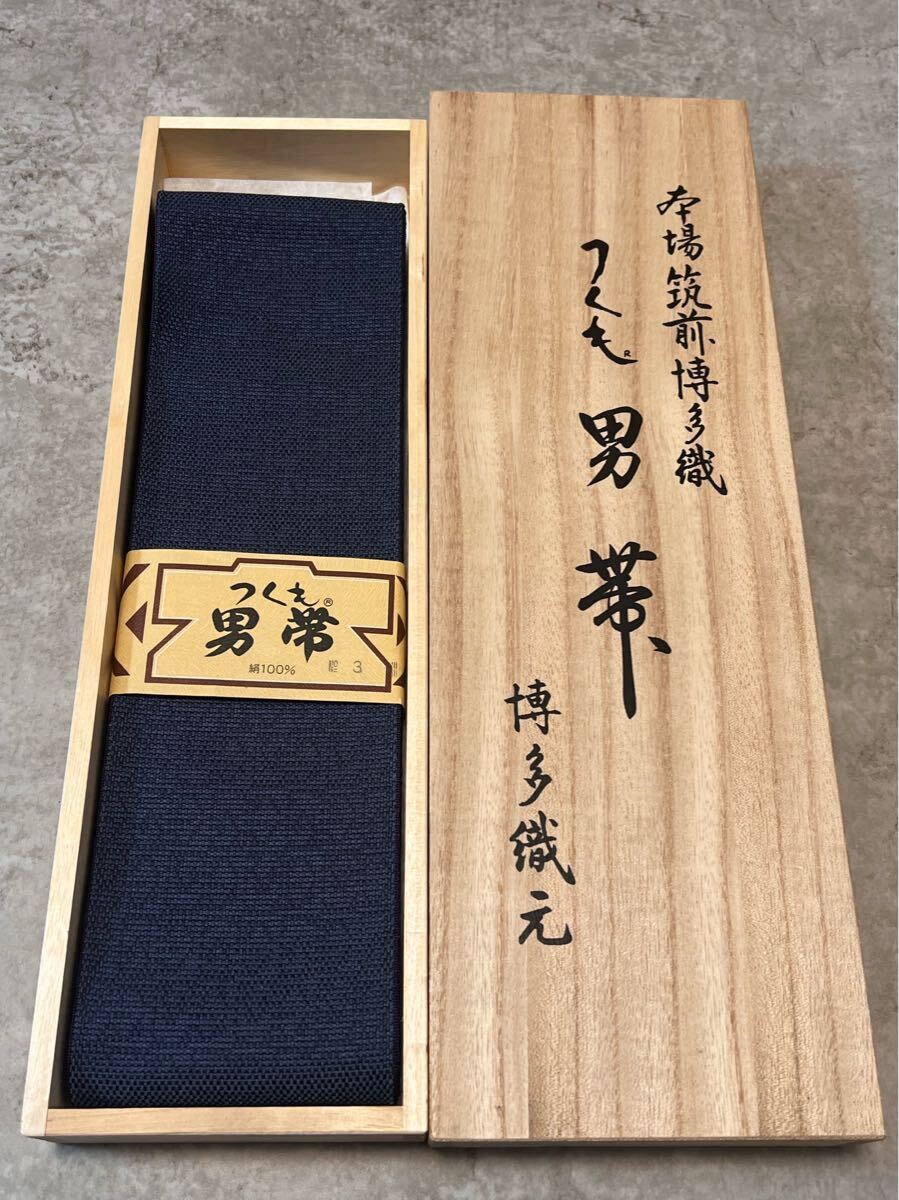 本場筑前博多織
つくも®
男帯
博多織元
つくも®
男帯
絹100%
3